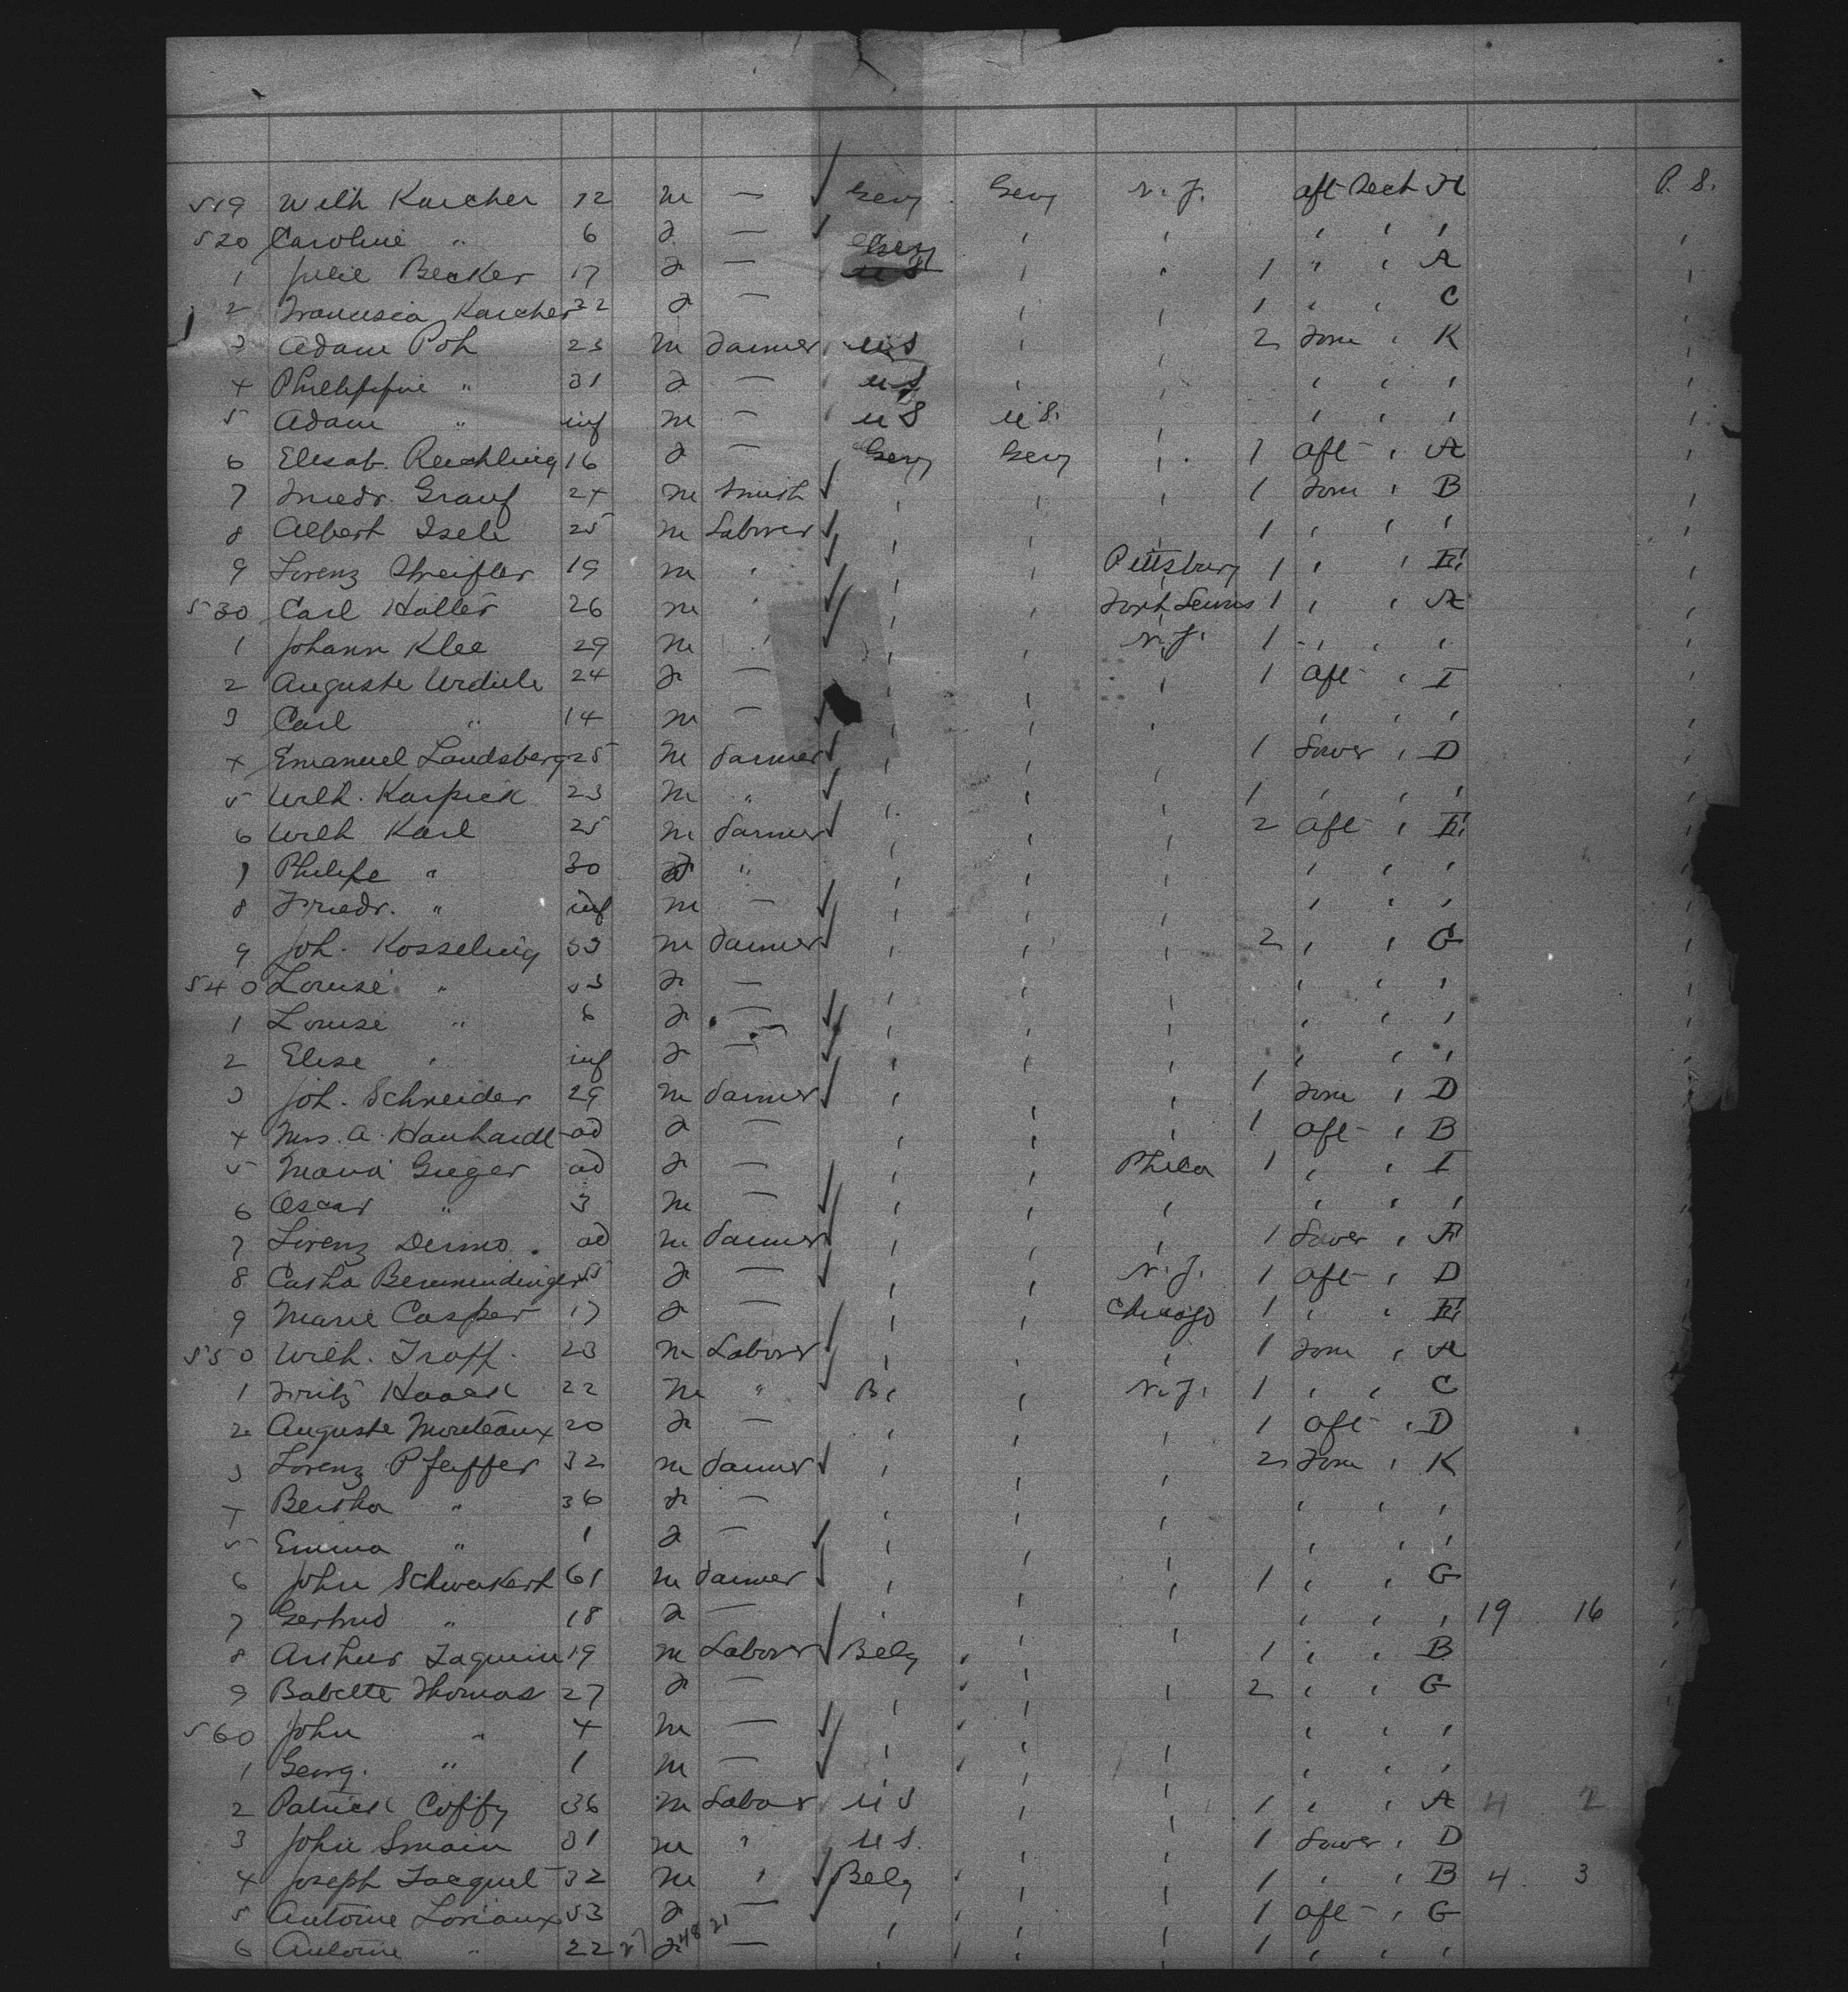 519 Wilh Karcher 12 m — Gery Gery N.Y. aft Sect H P. S.
520 Caroline " 6 f — Gery ' ' ' ' ' '
1 Julie Becker 17 f — U S ' ' 1 " ' A '
2 Karcher 22 f — ' ' 1 ' ' C '
3 Adam Poh 23 m Farmer U S ' ' 2 Fore ' K '
4 Philippine " 31 f — U S ' ' ' ' ' '
5 Adam " inf m — U S U S. ' ' ' ' '
6 Elisab. Reichling 16 f — Gery Gery ' 1 Aft ' A '
7 Friedr. Grauf 24 m Smith ' ' ' 1 Fore ' B '
8 Albert Isele 25 m Laborer ' ' ' 1 ' ' ' '
9 Lorenz 19 m ' ' ' Pittsburg 1 ' ' E '
530 Carl Haller 26 m ' ' ' Fort 1 ' ' A '
1 Johann Klee 29 m ' ' ' N.Y. 1 ' ' ' '
2 Auguste 24 f — ' ' ' 1 Aft ' I '
3 Carl " 14 m — ' ' ' ' ' ' '
4 Emanuel Landsberg 25 m Farmer ' ' ' 1 Lower ' D '
5 Wilh. Karpick 23 m " ' ' ' 1 ' ' ' '
6 Wilh Karl 25 m Farmer ' ' ' 2 Aft ' E '
7 Philipe " 30 f " ' ' ' ' ' ' '
8 Friedr. " inf m — ' ' ' ' ' ' '
9 Joh. Kosseling 33 m Farmer ' ' ' 2 ' ' G '
540 Louise " 33 f — ' ' ' ' ' ' '
1 Louise " 6 f — ' ' ' ' ' ' '
2 Elise ' inf f — ' ' ' ' ' ' '
3 Joh. Schneider 29 m Farmer ' ' ' 1 Fore ' D '
4 Mrs. A. Hanhardt ad f — ' ' ' 1 Aft ' B '
5 Maria Gieger ad f — ' ' Phila 1 ' ' I '
6 Oscar " 3 m — ' ' ' ' ' ' '
7 Lorenz Deimo ad m Farmer ' ' ' 1 Lower ' '
8 f — ' ' N.Y. 1 Aft ' D '
9 Marie Casper 17 f — ' ' Chicago 1 ' ' E '
550 Wilh. Traff. 23 m Laborer ' ' ' 1 Fore ' A '
1 Fritz Haack 22 m " ' N.Y. 1 ' ' C '
2 Auguste Monteaux 20 f — ' ' ' 1 Aft ' D '
3 Lorenz Pfeiffer 32 m Farmer ' ' ' 2 Fore ' K '
4 Bertha " 36 f — ' ' ' ' ' ' '
5 Emma " 1 f — ' ' ' ' ' ' '
6 John Schweikert 61 m Farmer ' ' ' 1 ' ' G '
7 Gertrud " 18 f — ' ' ' ' ' ' 19 16 '
8 Arthur Jaquin 19 m Laborer Belg ' ' 1 ' ' B '
9 Babette Thomas 27 f — ' ' ' 2 ' ' G '
560 John " 4 m — ' ' ' ' ' ' '
1 Georg. " 1 m — ' ' ' ' ' ' '
2 Patrick Coffy 36 m Labor U S ' ' 1 ' ' A 4 2
3 John Smain 31 m " U S. ' ' 1 Lower ' D
4 Joseph Jacquet 32 m ' Belg ' ' 1 ' ' B 4 3
5 Antoine Loriaux 53 f — ' ' ' 1 Aft ' G
6 Antoine " 22 f 48 21 — ' ' ' 1 ' ' '